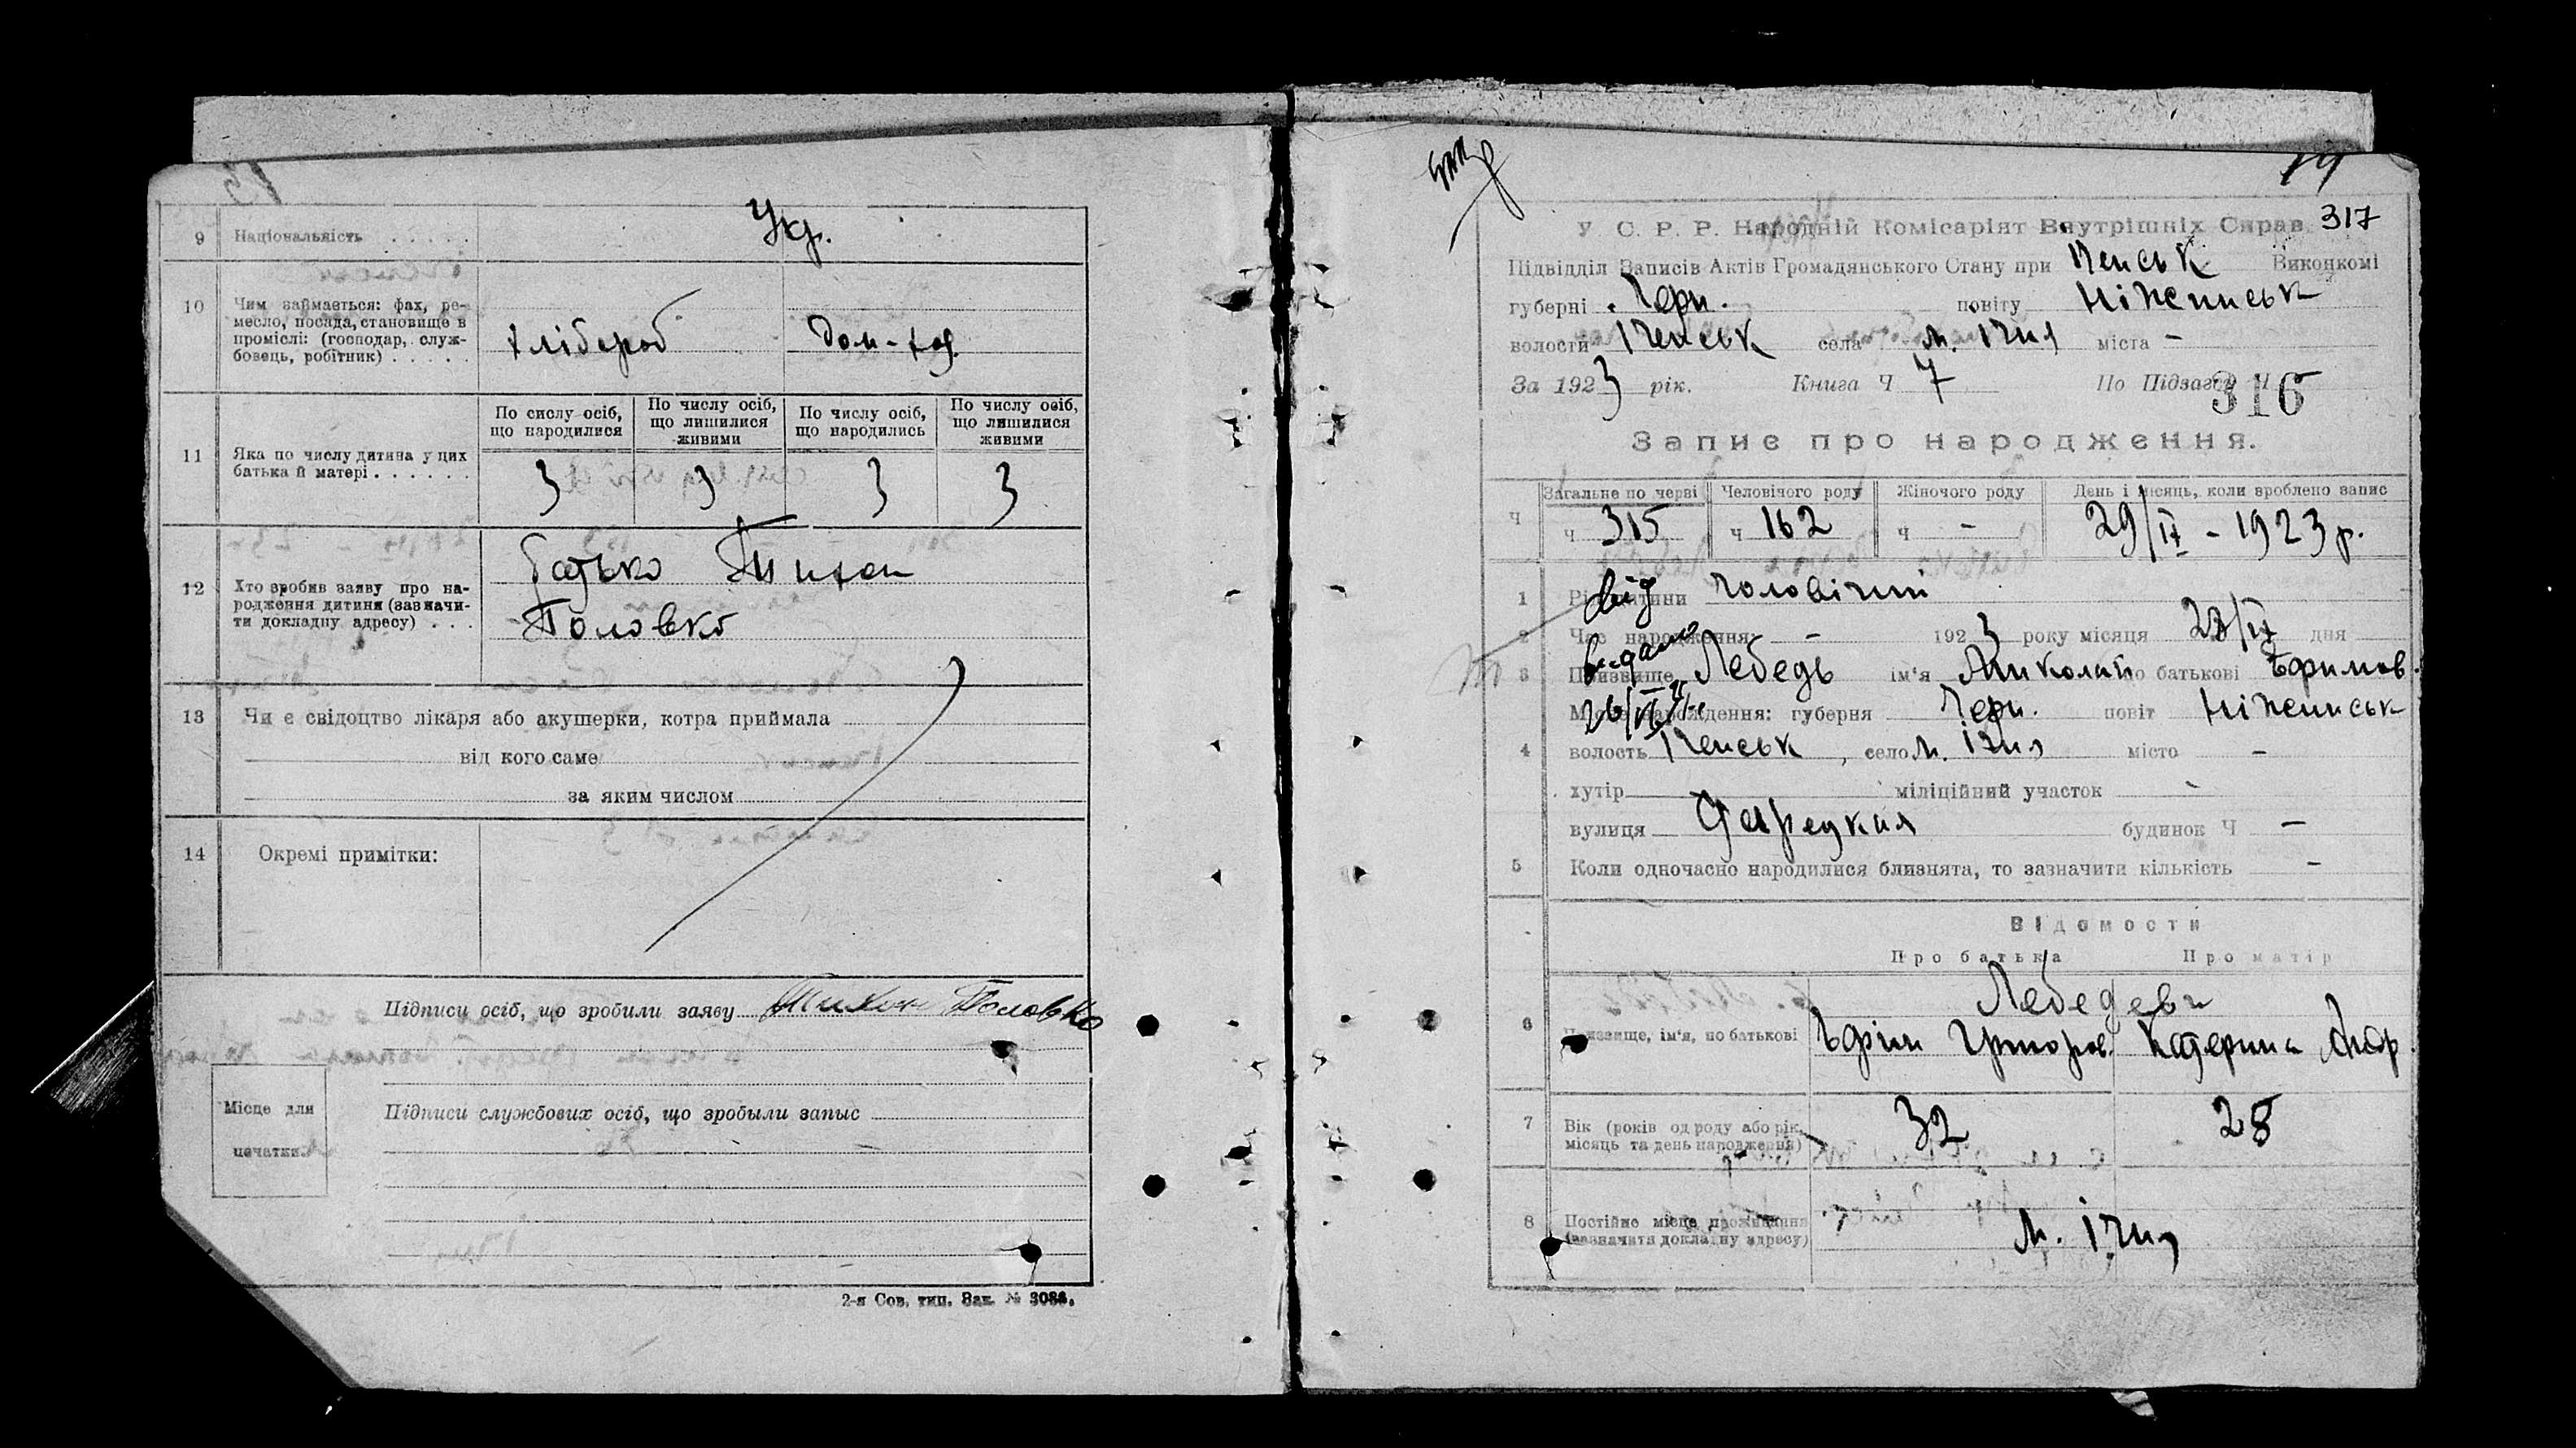 9 Національність . . . . . Укр.
10 Чим займається: фах, ре-
месло, посада, становище в
проміслі: (господар, служ-
бовець, робітник) . . . . .
хлібороб дом-хоз.
11 Яка по числу дитина у цих
батька й матері . . . . . .
По сислу осіб, що народилися
По числу осіб, що лишилися живими
По числу осіб, що народились
По числу осіб, що лишилися живими
3 3 3 3
12 Хто зробив заяву про на-
родження дитини (зазначи-
ти докладну адресу) . . .
батько Тихон
Половко
13 Чи є свідоцтво лікаря або акушерки, котра приймала
від кого саме
за яким числом
14 Окремі примітки:
Підписи осіб, що зробили заяву Тихон Половко
Підписи службових осіб, що зробыли запыс
Місце для
печатки.
2-я Сов. тип. Зак. №
19
У. С. Р. Р. Народній Комісаріят Внутрішніх Справ. 317
Підвідділ Записів Актів Громадянського Стану при Іченськ Виконкомі
губерні Черн. повіту Ніженськ
волости Іченськ села м. Ічня міста -
За 1923 рік. Книга Ч 7 По Підзагов Ч
316
Запис про народження.
Ч
Загальне по черві Человічого роду Жіночого роду День і місяць, коли зроблено запис
ч 315 ч 162 ч - 29/IX - 1923 р.
1 Рід дитини чоловічий
2 Час народження - 1923 року місяця дня
видано
3 Призвище Лебедь ім'я Миколай по батькові Ефимов.
4 Місце народження: губерня Черн. повіт Ніженськ
волость Іченськ, село м. Ічня місто -
хутір міліційний участок -
вулиця будинок Ч -
5 Коли одночасно народилися близнята, то зазначити кількість -
Відомости
Про батька Про матір
Лебедеви
6 Призвище, ім'я, по батькові Ефим Григоров. Катерина Андр.
7 Вік (років од роду або рік,
місяць та день народження)
32 28
8 Постійне місце проживання
(зазначити докладну адресу)
м. Ічня